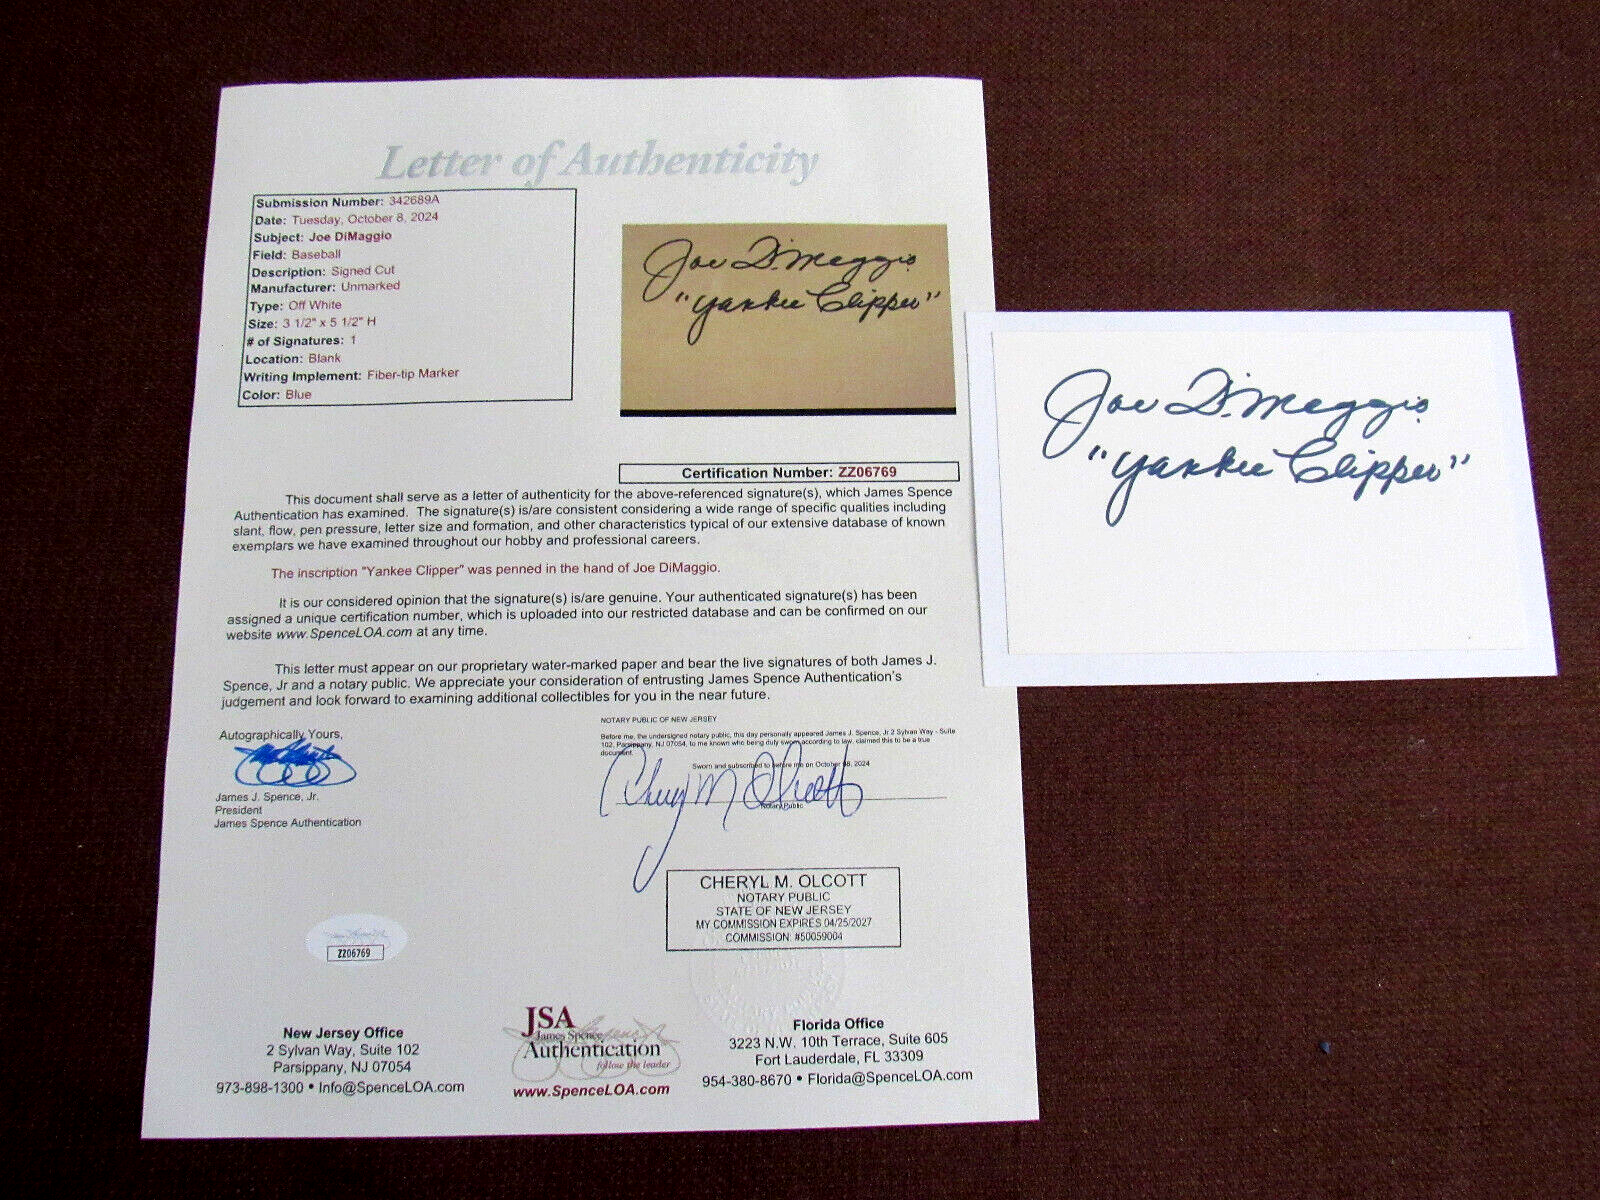 Letter of Authenticity
Submission Number: 342689A
Date: Tuesday, October 8, 2024
Subject: Joe DiMaggio
Field: Baseball
Description: Signed Cut
Manufacturer: Unmarked
Type: Off White
Size: 3 1/2" x 5 1/2" H
# of Signatures: 1
Location: Blank
Writing Implement: Fiber-tip Marker
Color: Blue
Joe DiMaggio
"Yankee Clipper"
Certification Number: ZZ06769
This document shall serve as a letter of authenticity for the above-referenced signature(s), which James Spence
Authentication has examined. The signature(s) is/are consistent considering a wide range of specific qualities including
slant, flow, pen pressure, letter size and formation, and other characteristics typical of our extensive database of known
exemplars we have examined throughout our hobby and professional careers.
The inscription "Yankee Clipper" was penned in the hand of Joe DiMaggio.
It is our considered opinion that the signature(s) is/are genuine. Your authenticated signature(s) has been
assigned a unique certification number, which is uploaded into our restricted database and can be confirmed on our
website www.SpenceLOA.com at any time.
This letter must appear on our proprietary water-marked paper and bear the live signatures of both James J.
Spence, Jr and a notary public. We appreciate your consideration of entrusting James Spence Authentication's
judgement and look forward to examining additional collectibles for you in the near future.
Autographically Yours,
James J. Spence, Jr.
President
James Spence Authentication
NOTARY PUBLIC OF NEW JERSEY
Before me, the undersigned notary public, this day personally appeared James J. Spence, Jr 2 Sylvan Way - Suite
102, Parsippany, NJ 07054, to me known who being duly sworn according to law, claimed this to be a true
document.
Sworn and subscribed to before me on October 08, 2024
Cheryl M Olcott
Notary Public
CHERYL M. OLCOTT
NOTARY PUBLIC
STATE OF NEW JERSEY
MY COMMISSION EXPIRES 04/25/2027
COMMISSION: #50059004
ZZ06769
New Jersey Office
2 Sylvan Way, Suite 102
Parsippany, NJ 07054
973-898-1300 • Info@SpenceLOA.com
JSA
James Spence
Authentication
follow the leader
www.SpenceLOA.com
Florida Office
3223 N.W. 10th Terrace, Suite 605
Fort Lauderdale, FL 33309
954-380-8670 • Florida@SpenceLOA.com
Joe DiMaggio
"Yankee Clipper"